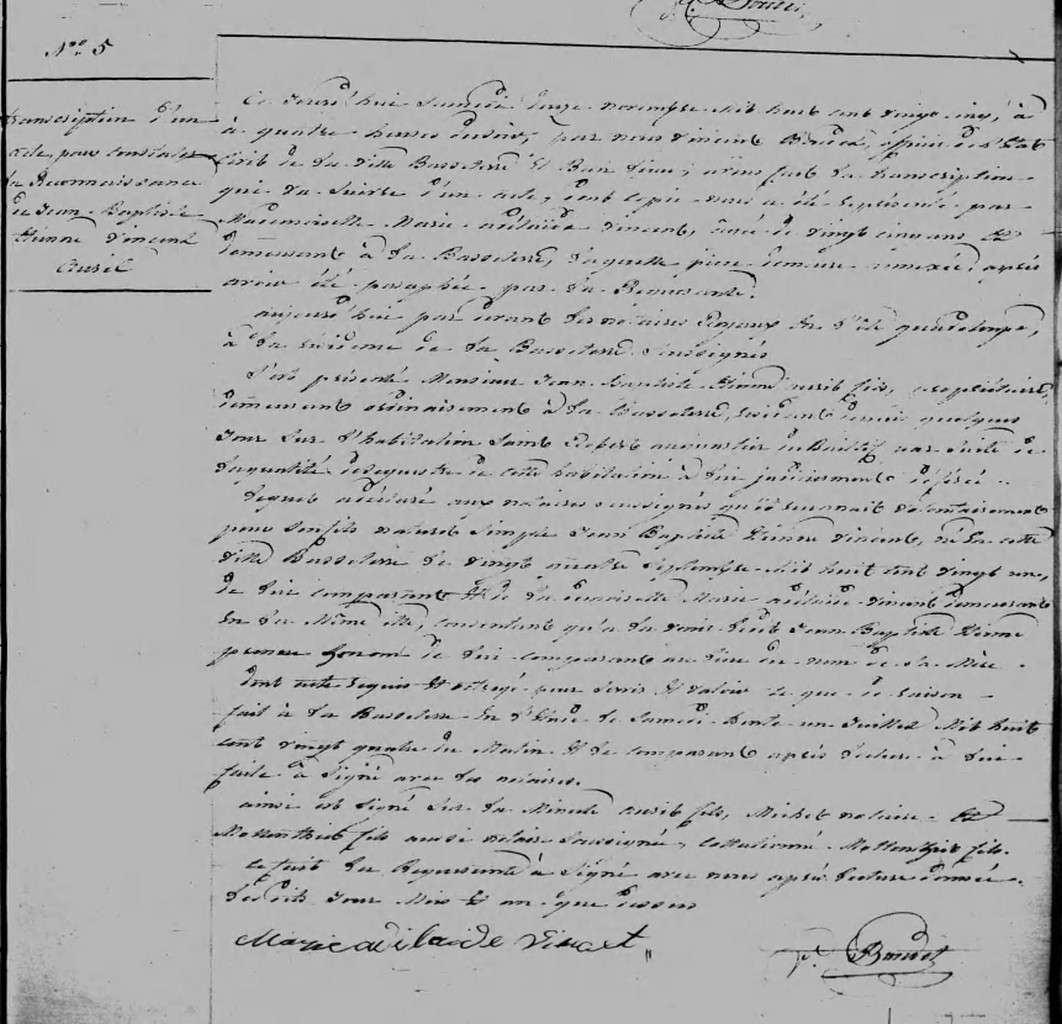 N.ro 5
transcription d'un
acte, pour constater
la Reconnaissance
de Jean Baptiste
Etienne Vincent
Ce Jourd'hui Samedi douze novembre mil huit cent vingt cinq, à
à quatre heures du soir, par nous Vincent officier de l'Etat
Civil de la ville Basseterre Et Ban lieue, avons fait la transcription
qui va suivre d'un acte, dont copie nous a été représentée par
Mademoiselle Marie adélaïde Vincent, âgée de vingt cinq ans et
demeurant à la Basseterre, laquelle pièce demeure annexée, après
avoir été paraphée par la Requérante.
aujourd'hui par devant les notaires Royaux En l'île guadeloupe,
à la résidence de la Basseterre Soussignés
S'est présenté Monsieur Jean Baptiste Etienne fils, propriétaire,
demeurant ordinairement à la Basseterre, résident depuis quelques
Jour Sur l'habitation Saint Robert au quartier du Baillif par Suite de
la qualité de Sequestre de cette habitation à lui judiciairement déférée.
Lequel a déclaré aux notaires soussignés qu'il reconnait volontairement
pour Son fils naturel Simple Jean Baptiste Etienne Vincent, né En cette
ville Basseterre le vingt quatre Septembre mil huit cent vingt un,
de lui comparant Et de la demoiselle Marie adélaïde Vincent demeurant
En la Même ville, consentant qu'à l'avenir ledit Jean Baptiste Etienne
prenne le nom de lui comparant au lieu du nom de Sa Mère.
dont acte requis Et octroyé pour Servir Et valoir ce que de raison
fait à la Basseterre En l'Etude le Samedi trente un Juillet Mil huit
cent vingt quatre du Matin Et le comparant après lecture à lui
faite à Signé avec les notaires.
ainsi est Signé Sur la Minute fils, Michel notaire et
fils aussi notaire Soussigné, Collationné fils.
Ce fait la Requérante à Signé avec nous après lecture donnée.
Lesdits Jour Mois Et an que dessus
Marie adilaide Vincent